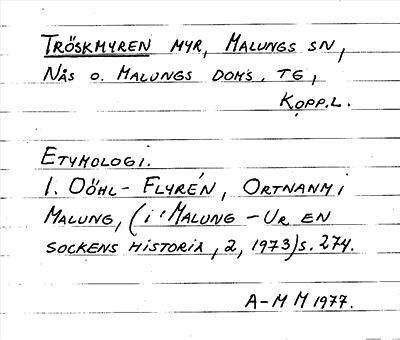 TRÖSKMYREN MYR, MALUNGS SN,
NÅS O. MALUNGS DOMS. TG,
KOPP.L.
ETYMOLOGI.
1. DÖHL-FLYRÉN, ORTNAMN I
MALUNG, (i 'MALUNG - UR EN
SOCKENS HISTORIA, 2, 1973) S. 274.
A-M M 1977.